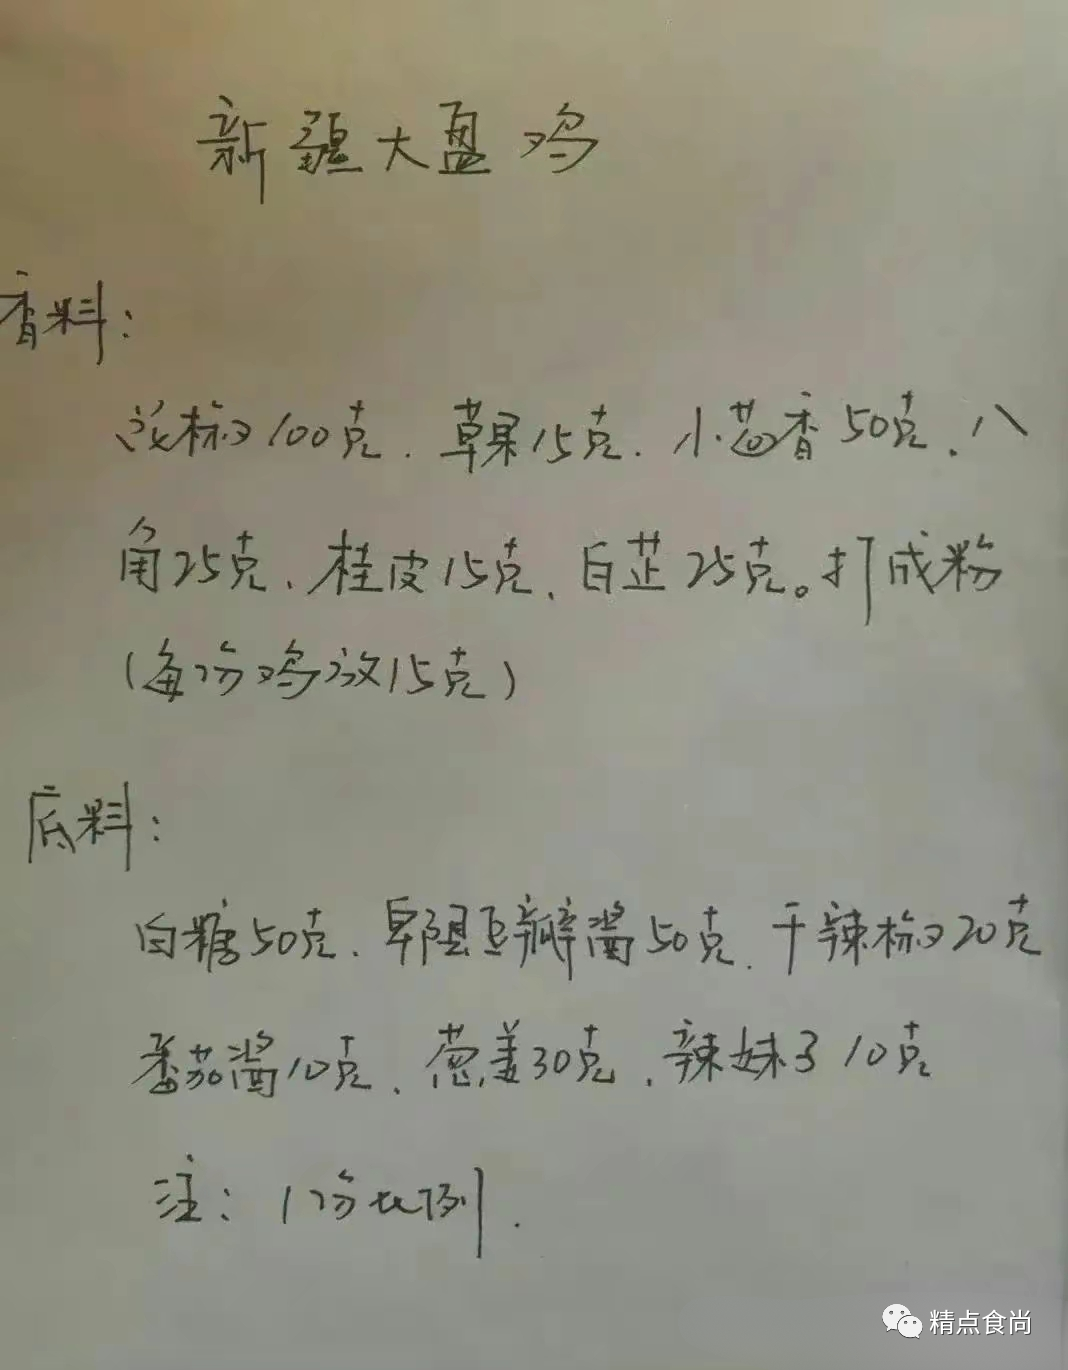 新疆大盘鸡
香料:
花椒100克、草果15克、小茴香50克、八
角25克、桂皮15克、白芷25克。打成粉
(每份鸡放15克)
底料:
白糖50克、郫县豆瓣酱50克、干辣椒20克
番茄酱10克、葱姜30克、辣妹子10克
注: 1份比例.
精点食尚